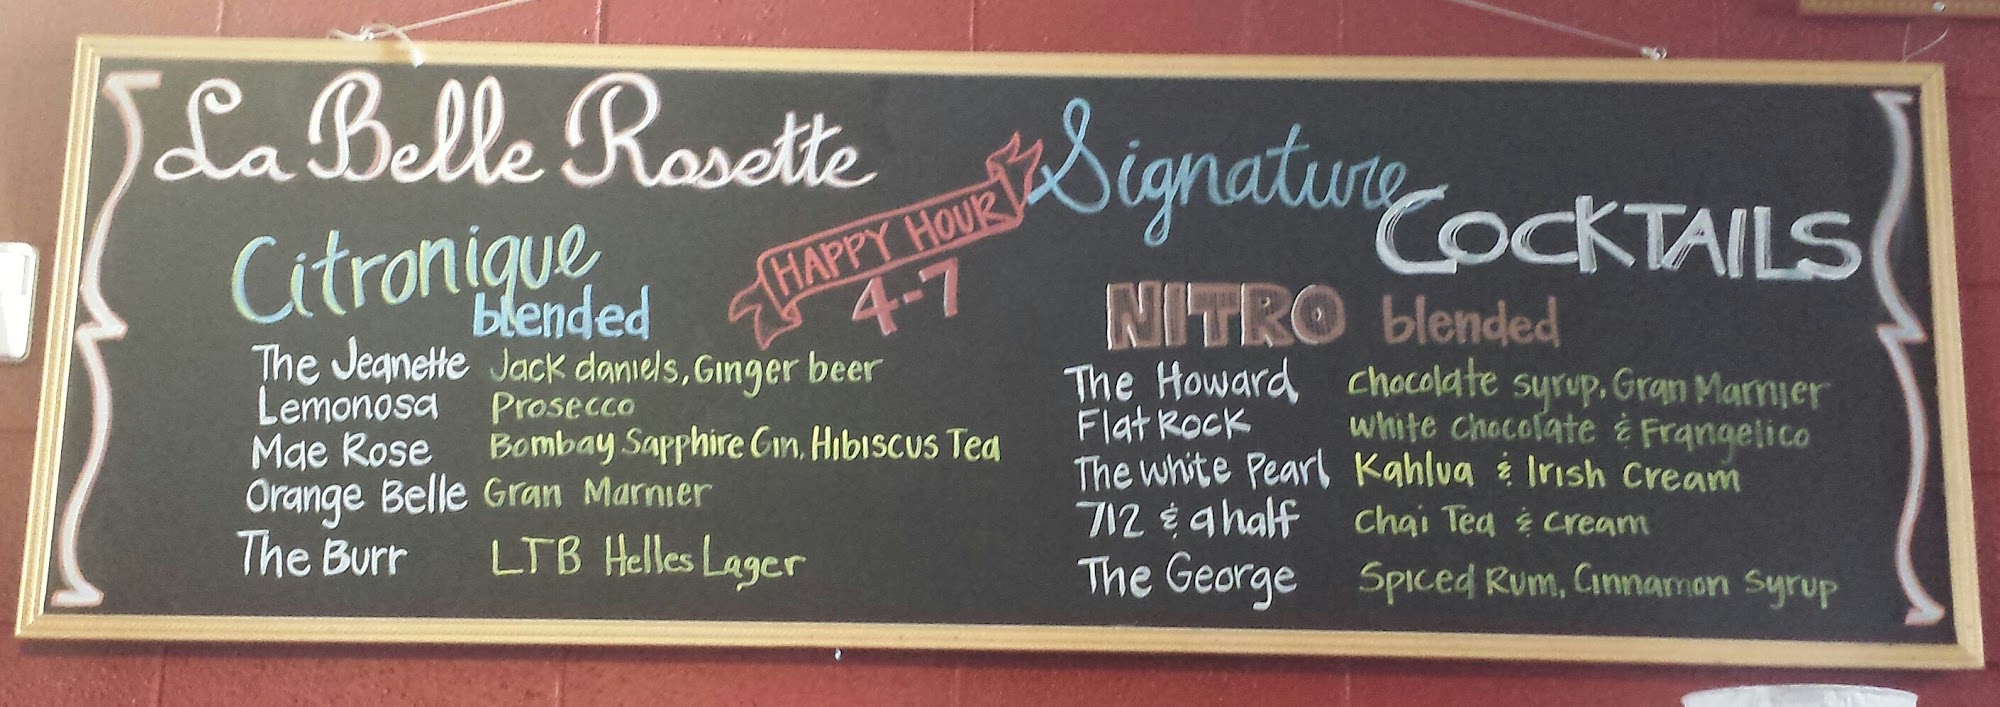 La Belle Rosette
HAPPY HOUR
4-7
Signature
COCKTAILS
Citronique
blended
The Jeanette Jack daniels, Ginger beer
Lemonosa Prosecco
Mae Rose Bombay Sapphire Gin, Hibiscus Tea
Orange Belle Gran Marnier
The Burr LTB Helles Lager
NITRO blended
The Howard Chocolate syrup, Gran Marnier
Flat Rock White Chocolate & Frangelico
The White Pearl Kahlua & Irish Cream
712 & a half Chai Tea & Cream
The George Spiced Rum, Cinnamon Syrup